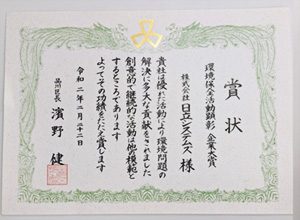 賞状
環境保全活動顕彰 企業大賞
株式会社 日立システムズ 様
貴社は優れた活動により環境問題の
解決に多大な貢献をされました
創意的で継続的な活動は他の模範と
するところであります
よってその功績をたたえ賞します
令和二年二月二十二日
品川区長 濱野 健